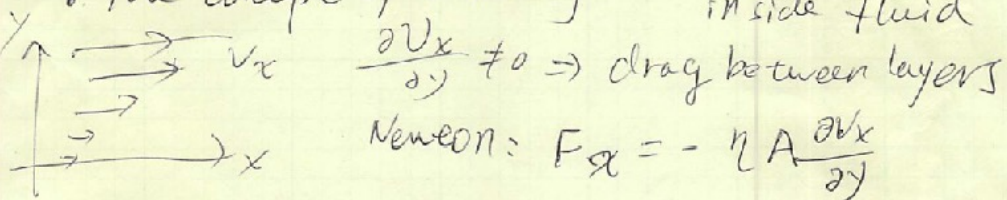 inside fluid
Y
Vx ∂Vx/∂y ≠ 0 ⇒ drag between layers
x Newton: Fx = - η A ∂Vx/∂y